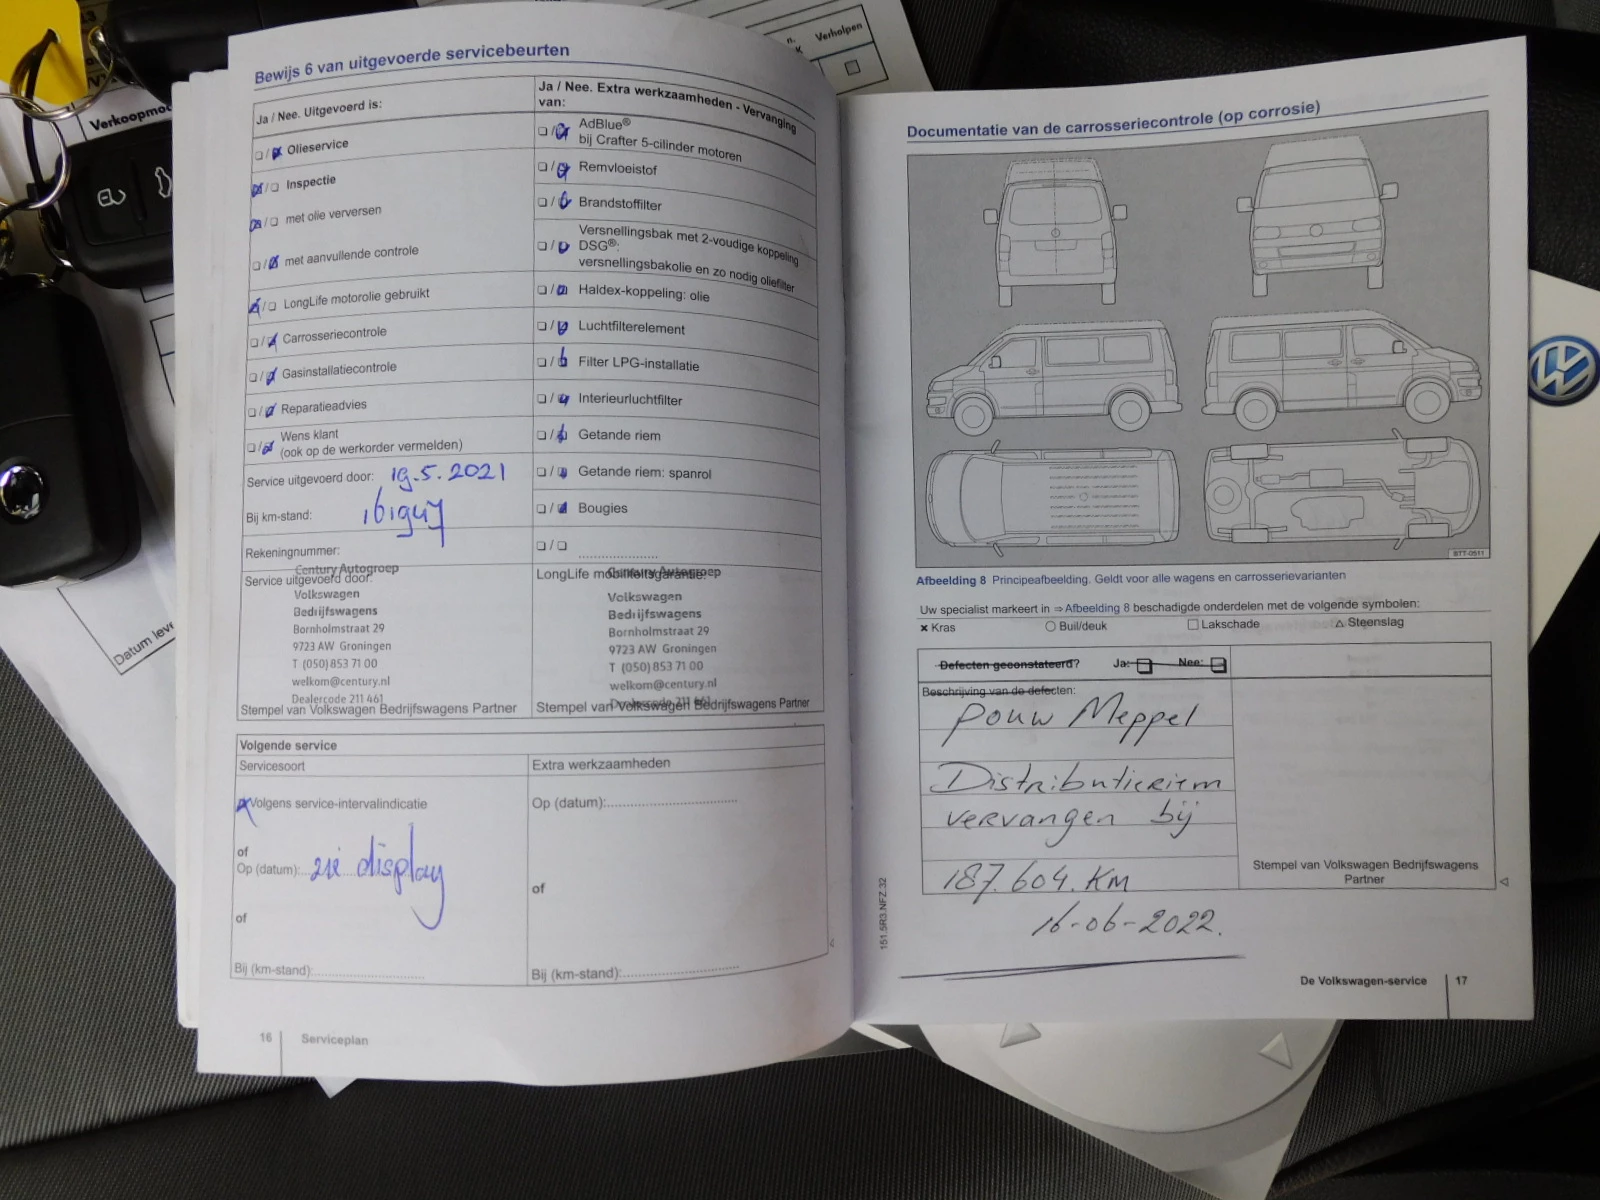 Verkoopmo
n. Verholpen
Datum leve
Bewijs 6 van uitgevoerde servicebeurten
Ja / Nee. Uitgevoerd is:
Olieservice
Inspectie
met olie verversen
met aanvullende controle
LongLife motorolie gebruikt
Carrosseriecontrole
Gasinstallatiecontrole
Reparatieadvies
Wens klant
(ook op de werkorder vermelden)
Service uitgevoerd door: 19.5.2021
Bij km-stand:
Rekeningnummer:
Service uitgevoerd door:
Century Autogroep
Volkswagen
Bedrijfswagens
Bornholmstraat 29
9723 AW Groningen
T (050) 853 71 00
welkom@century.nl
Dealercode 211 461
Stempel van Volkswagen Bedrijfswagens Partner
Ja / Nee. Extra werkzaamheden - Vervanging
van:
AdBlue®
bij Crafter 5-cilinder motoren
Remvloeistof
Brandstoffilter
Versnellingsbak met 2-voudige koppeling
DSG®:
versnellingsbakolie en zo nodig oliefilter
Haldex-koppeling: olie
Luchtfilterelement
Filter LPG-installatie
Interieurluchtfilter
Getande riem
Getande riem: spanrol
Bougies
LongLife mobiliteitsgarantie:
Century Autogroep
Volkswagen
Bedrijfswagens
Bornholmstraat 29
9723 AW Groningen
T (050) 853 71 00
welkom@century.nl
Dealercode 211 461
Stempel van Volkswagen Bedrijfswagens Partner
Volgende service
Servicesoort
Volgens service-intervalindicatie
of
Op (datum): zie display
of
Bij (km-stand):
Extra werkzaamheden
Op (datum):
of
Bij (km-stand):
16 Serviceplan
Documentatie van de carrosseriecontrole (op corrosie)
BTT-0511
Afbeelding 8 Principeafbeelding. Geldt voor alle wagens en carrosserievarianten
Uw specialist markeert in ⇒ Afbeelding 8 beschadigde onderdelen met de volgende symbolen:
× Kras ○ Buil/deuk □ Lakschade △ Steenslag
Defecten geconstateerd? Ja: Nee:
Beschrijving van de defecten:
Pouw Meppel
Distributieriem
vervangen bij
187.604.KM
16-06-2022.
Stempel van Volkswagen Bedrijfswagens
Partner
151.5R3.NFZ.32
De Volkswagen-service 17